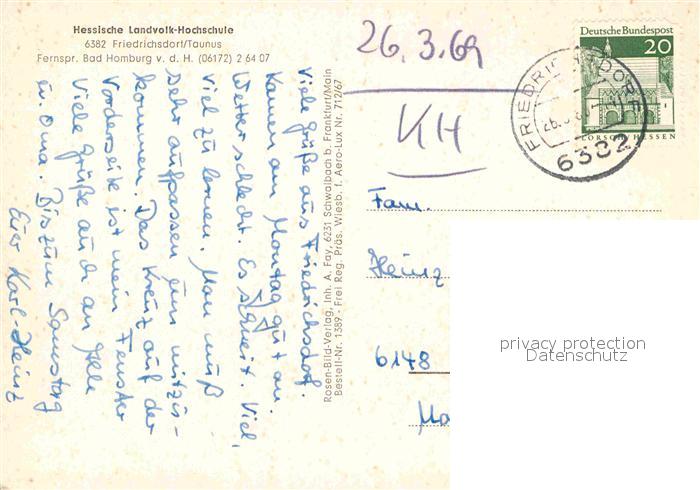 Hessische Landvolk-Hochschule
6382 Friedrichsdorf/Taunus
Fernspr. Bad Homburg v. d. H. (06172) 2 64 07
Viele Grüße aus Friedrichsdorf.
Kamen am Montag gut an.
Wetter schlecht. Es schneit. Viel,
viel zu lernen. Man muß
sehr aufpassen um mitzu-
kommen. Das Kreuz auf der
Vorderseite ist mein Fenster
Viele Grüße auch an
u. Oma. Bis zum Samstag
Euer Karl-Heinz
Rosen-Bild-Verlag, Inh. A. Fay, 6231 Schwalbach b. Frankfurt/Main
Bestell-Nr. 1389 - Frei Reg. Präs. Wiesb. f. Aero-Lux Nr. 712/67
26.3.69
KH
Deutsche Bundespost
20
LORSCH/HESSEN
FRIEDRICHSDORF
6382
Fam.
Heinz
6148
privacy protection
Datenschutz